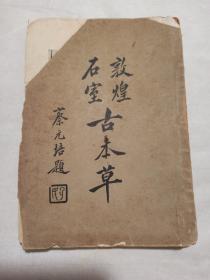 敦煌
石室
古本草
蔡元培題